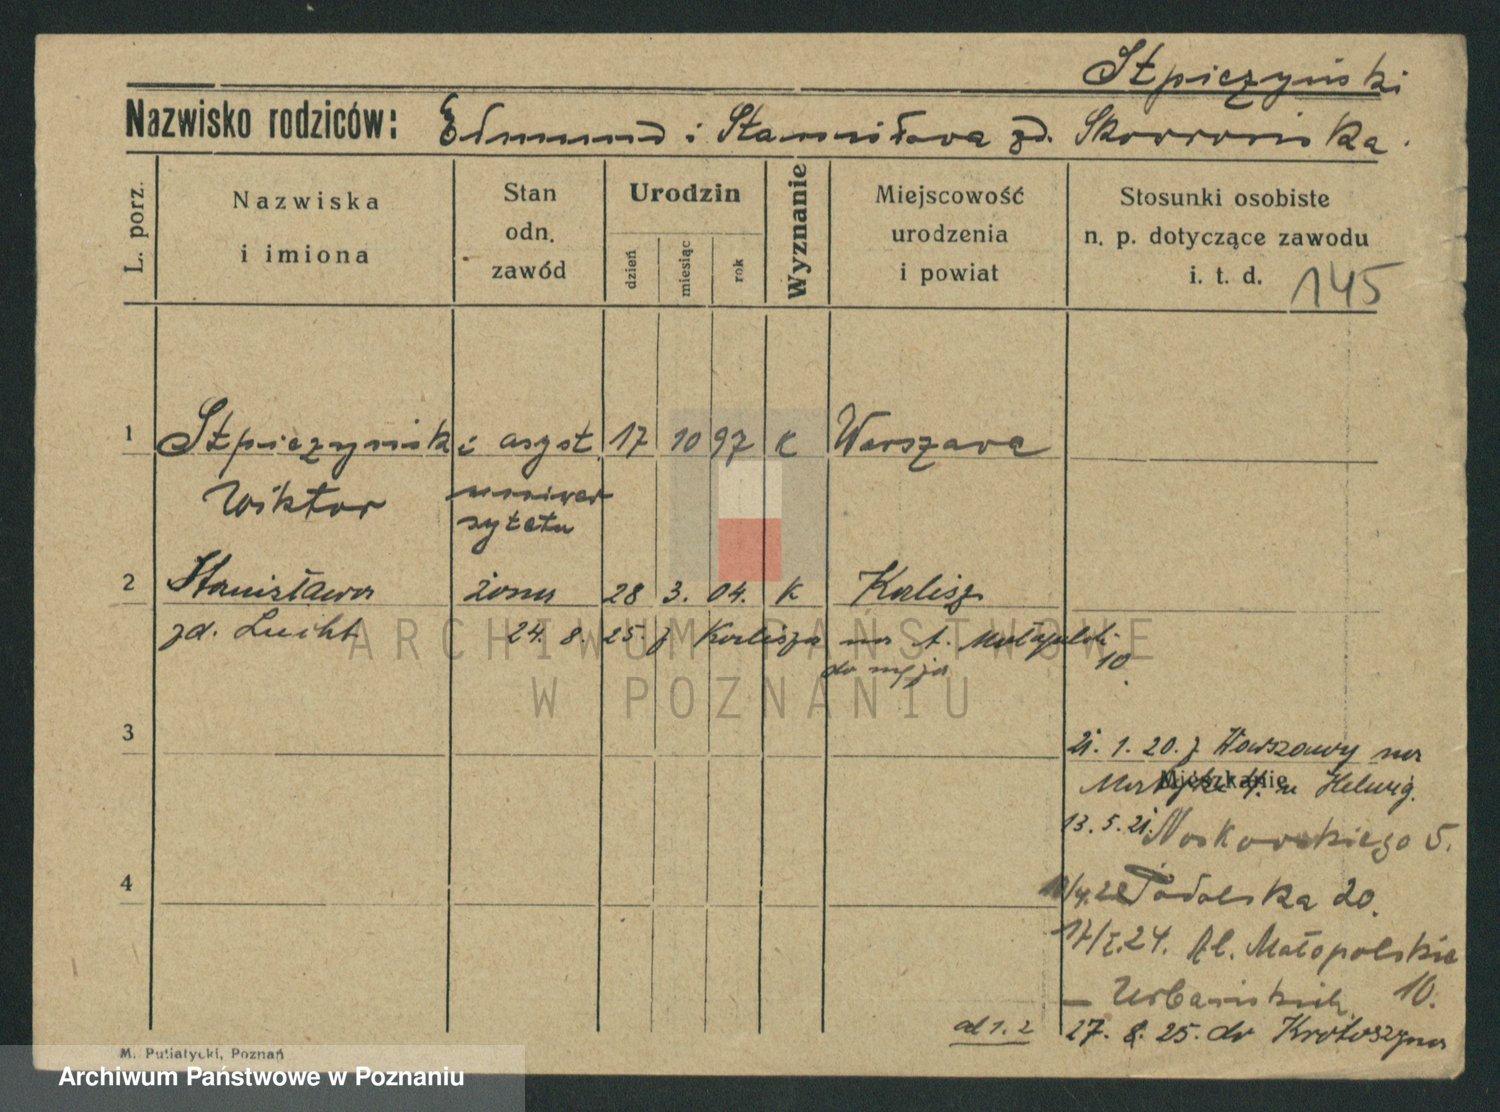 Stpiczyński
Nazwisko rodziców: Edmund i Stanisława zd. Skowrońska.
L. porz.
Nazwiska
i imiona
Stan
odn.
zawód
Urodzin
dzień
miesiąc
rok
Wyznanie
Miejscowość
urodzenia
i powiat
Stosunki osobiste
n. p. dotyczące zawodu
i. t. d.
145
1 Stpiczyński asyst. 17 10 97 K Warszawa
Wiktor
uniwer
sytetu
2 Stanisława żona 28 3. 04. K Kalisz
zd. Lucht 24. 8. 25. z Kalisza na t. Małopolsk. 10.
do męża
ARCHIWUM PAŃSTWOWE
W POZNANIU
3
21. 1. 20. z Warszawy na
Mieszkanie
u Helwig.
13. 5. 21. Noskowskiego 5.
4
Podolska 20.
17/I.24. Al. Małopolskie
10.
– Urbańskich
od 1. 2
27. 8. 25. do Krotoszyna
M. Putiatycki, Poznań
Archiwum Państwowe w Poznaniu